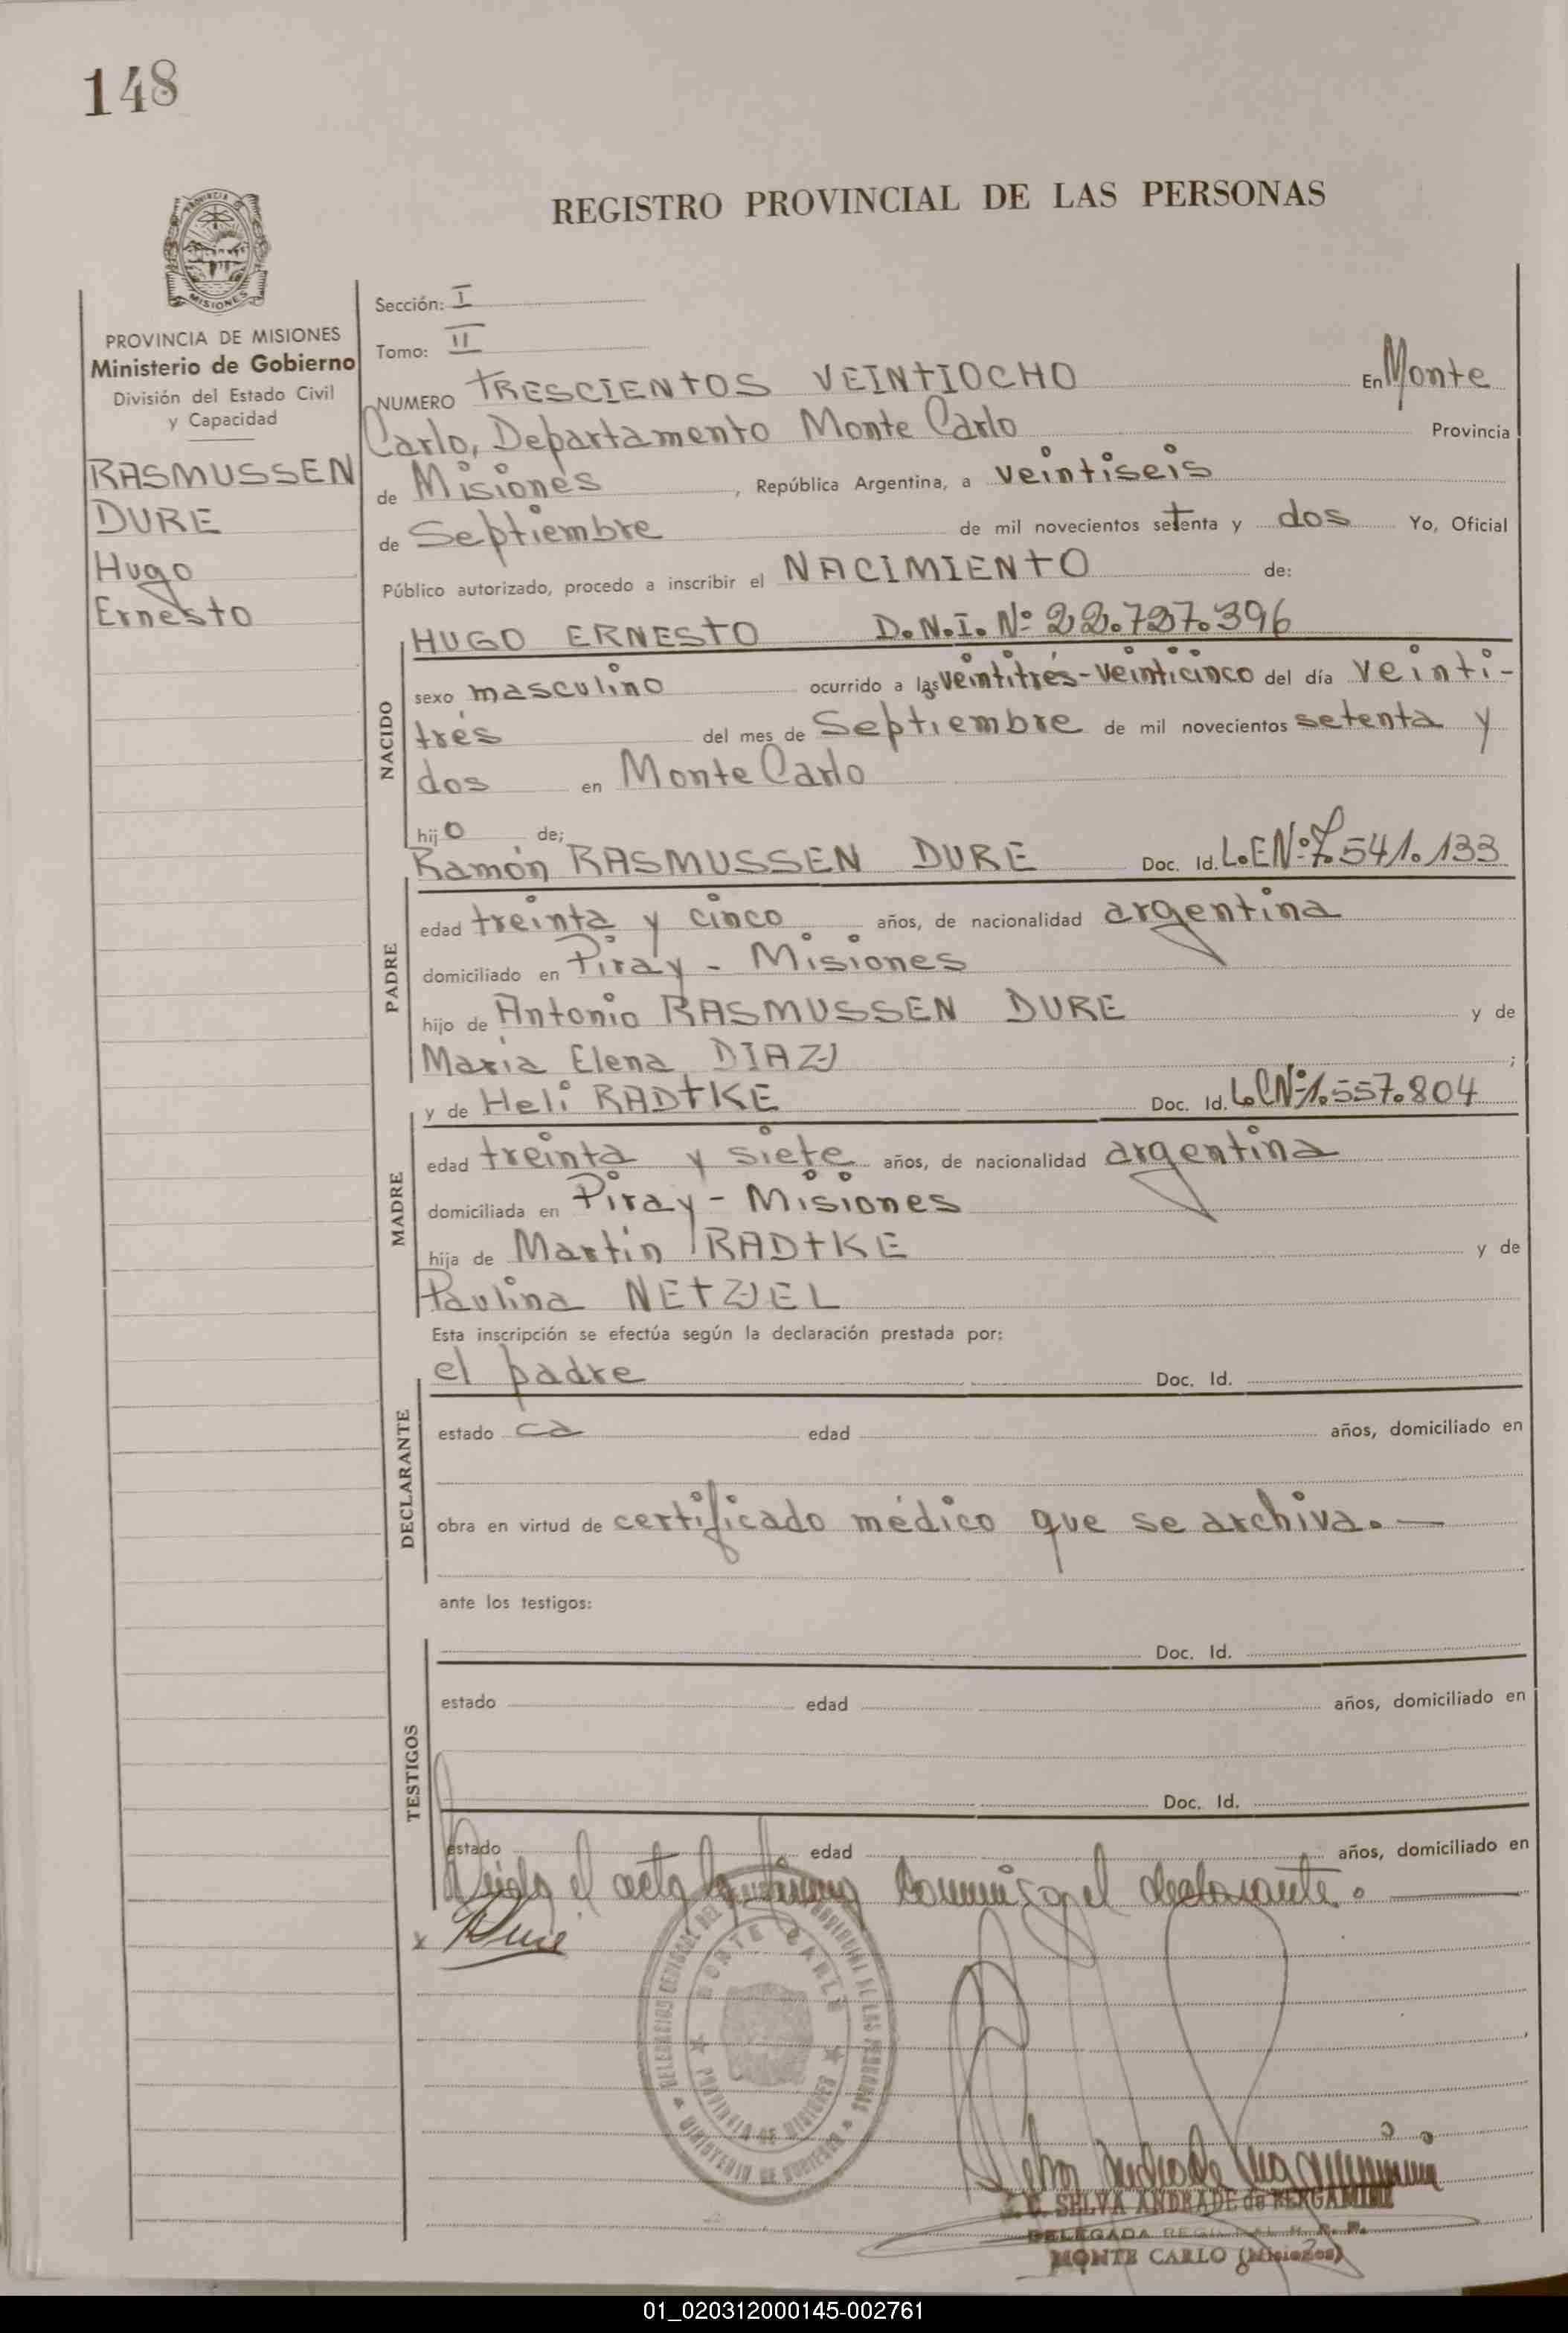 148
REGISTRO PROVINCIAL DE LAS PERSONAS
MISIONES
PROVINCIA DE MISIONES
Ministerio de Gobierno
División del Estado Civil
y Capacidad
RASMUSSEN
DURE
Hugo
Ernesto
Sección: I
Tomo: II
NUMERO TRESCIENTOS VEINTIOCHO En Monte
Carlo, Departamento Monte Carlo Provincia
de Misiones, República Argentina, a veintiseis
de Septiembre de mil novecientos setenta y dos Yo, Oficial
Público autorizado, procedo a inscribir el NACIMIENTO de:
NACIDO
HUGO ERNESTO D.N.I. Nº 22.727.396
sexo masculino ocurrido a las veintitrés-veinticinco del día veinti-
trés del mes de Septiembre de mil novecientos setenta y
dos en Monte Carlo
hijo de;
PADRE
Ramón RASMUSSEN DURE Doc. Id. L.E Nº 7.541.133
edad treinta y cinco años, de nacionalidad argentina
domiciliado en Piray - Misiones
hijo de Antonio RASMUSSEN DURE y de
María Elena DIAZ ;
MADRE
y de Heli RADTKE Doc. Id. L.C Nº 1.557.804
edad treinta y siete años, de nacionalidad argentina
domiciliada en Piray - Misiones
hija de Martín RADTKE y de
Paulina NETZEL
Esta inscripción se efectúa según la declaración prestada por:
DECLARANTE
el padre Doc. Id.
estado ca edad años, domiciliado en
obra en virtud de certificado médico que se archiva. —
ante los testigos:
TESTIGOS
Doc. Id.
estado edad años, domiciliado en
Doc. Id.
estado edad años, domiciliado en
Leida el acta la firma conmigo el declarante. —
x Dure
MONTE CARLO
PROVINCIA DE MISIONES
MINISTERIO DE GOBIERNO
C. SELVA ANDRADE de BERGAMINI
DELEGADA REGIONAL R. P. P.
MONTE CARLO (Misiones)
01_020312000145-002761